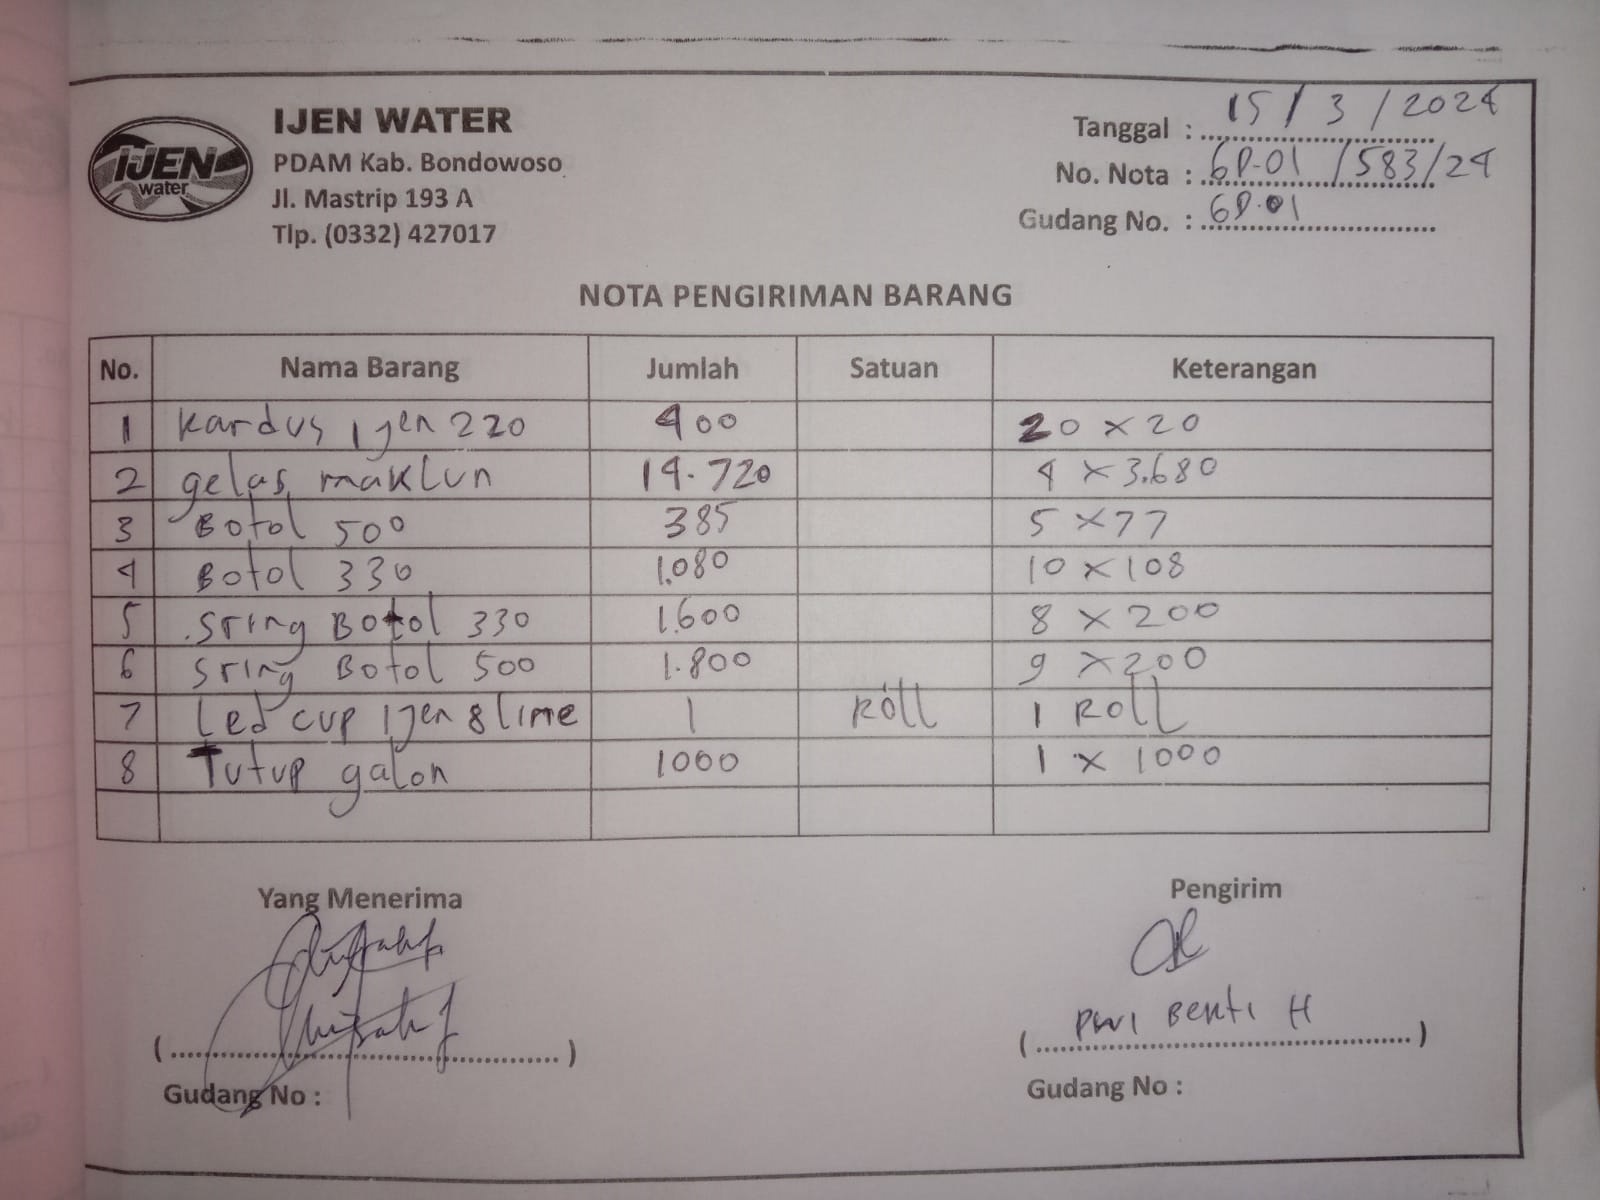 IJEN
water
IJEN WATER
PDAM Kab. Bondowoso
Jl. Mastrip 193 A
Tlp. (0332) 427017
Tanggal : 15/3/2024
No. Nota : GD-01/583/24
Gudang No. : GD.01
NOTA PENGIRIMAN BARANG
No. Nama Barang Jumlah Satuan Keterangan
1 Kardus Ijen 220 400 20 x 20
2 gelas maklun 14.720 4 x 3.680
3 Botol 500 385 5 x 77
4 Botol 330 1.080 10 x 108
5 Sring Botol 330 1.600 8 x 200
6 Sring Botol 500 1.800 9 x 200
7 Led cup Ijen 8 line 1 Roll 1 Roll
8 Tutup galon 1000 1 x 1000
Yang Menerima
Pengirim
( )
( Dwi Bekti H )
Gudang No :
Gudang No :